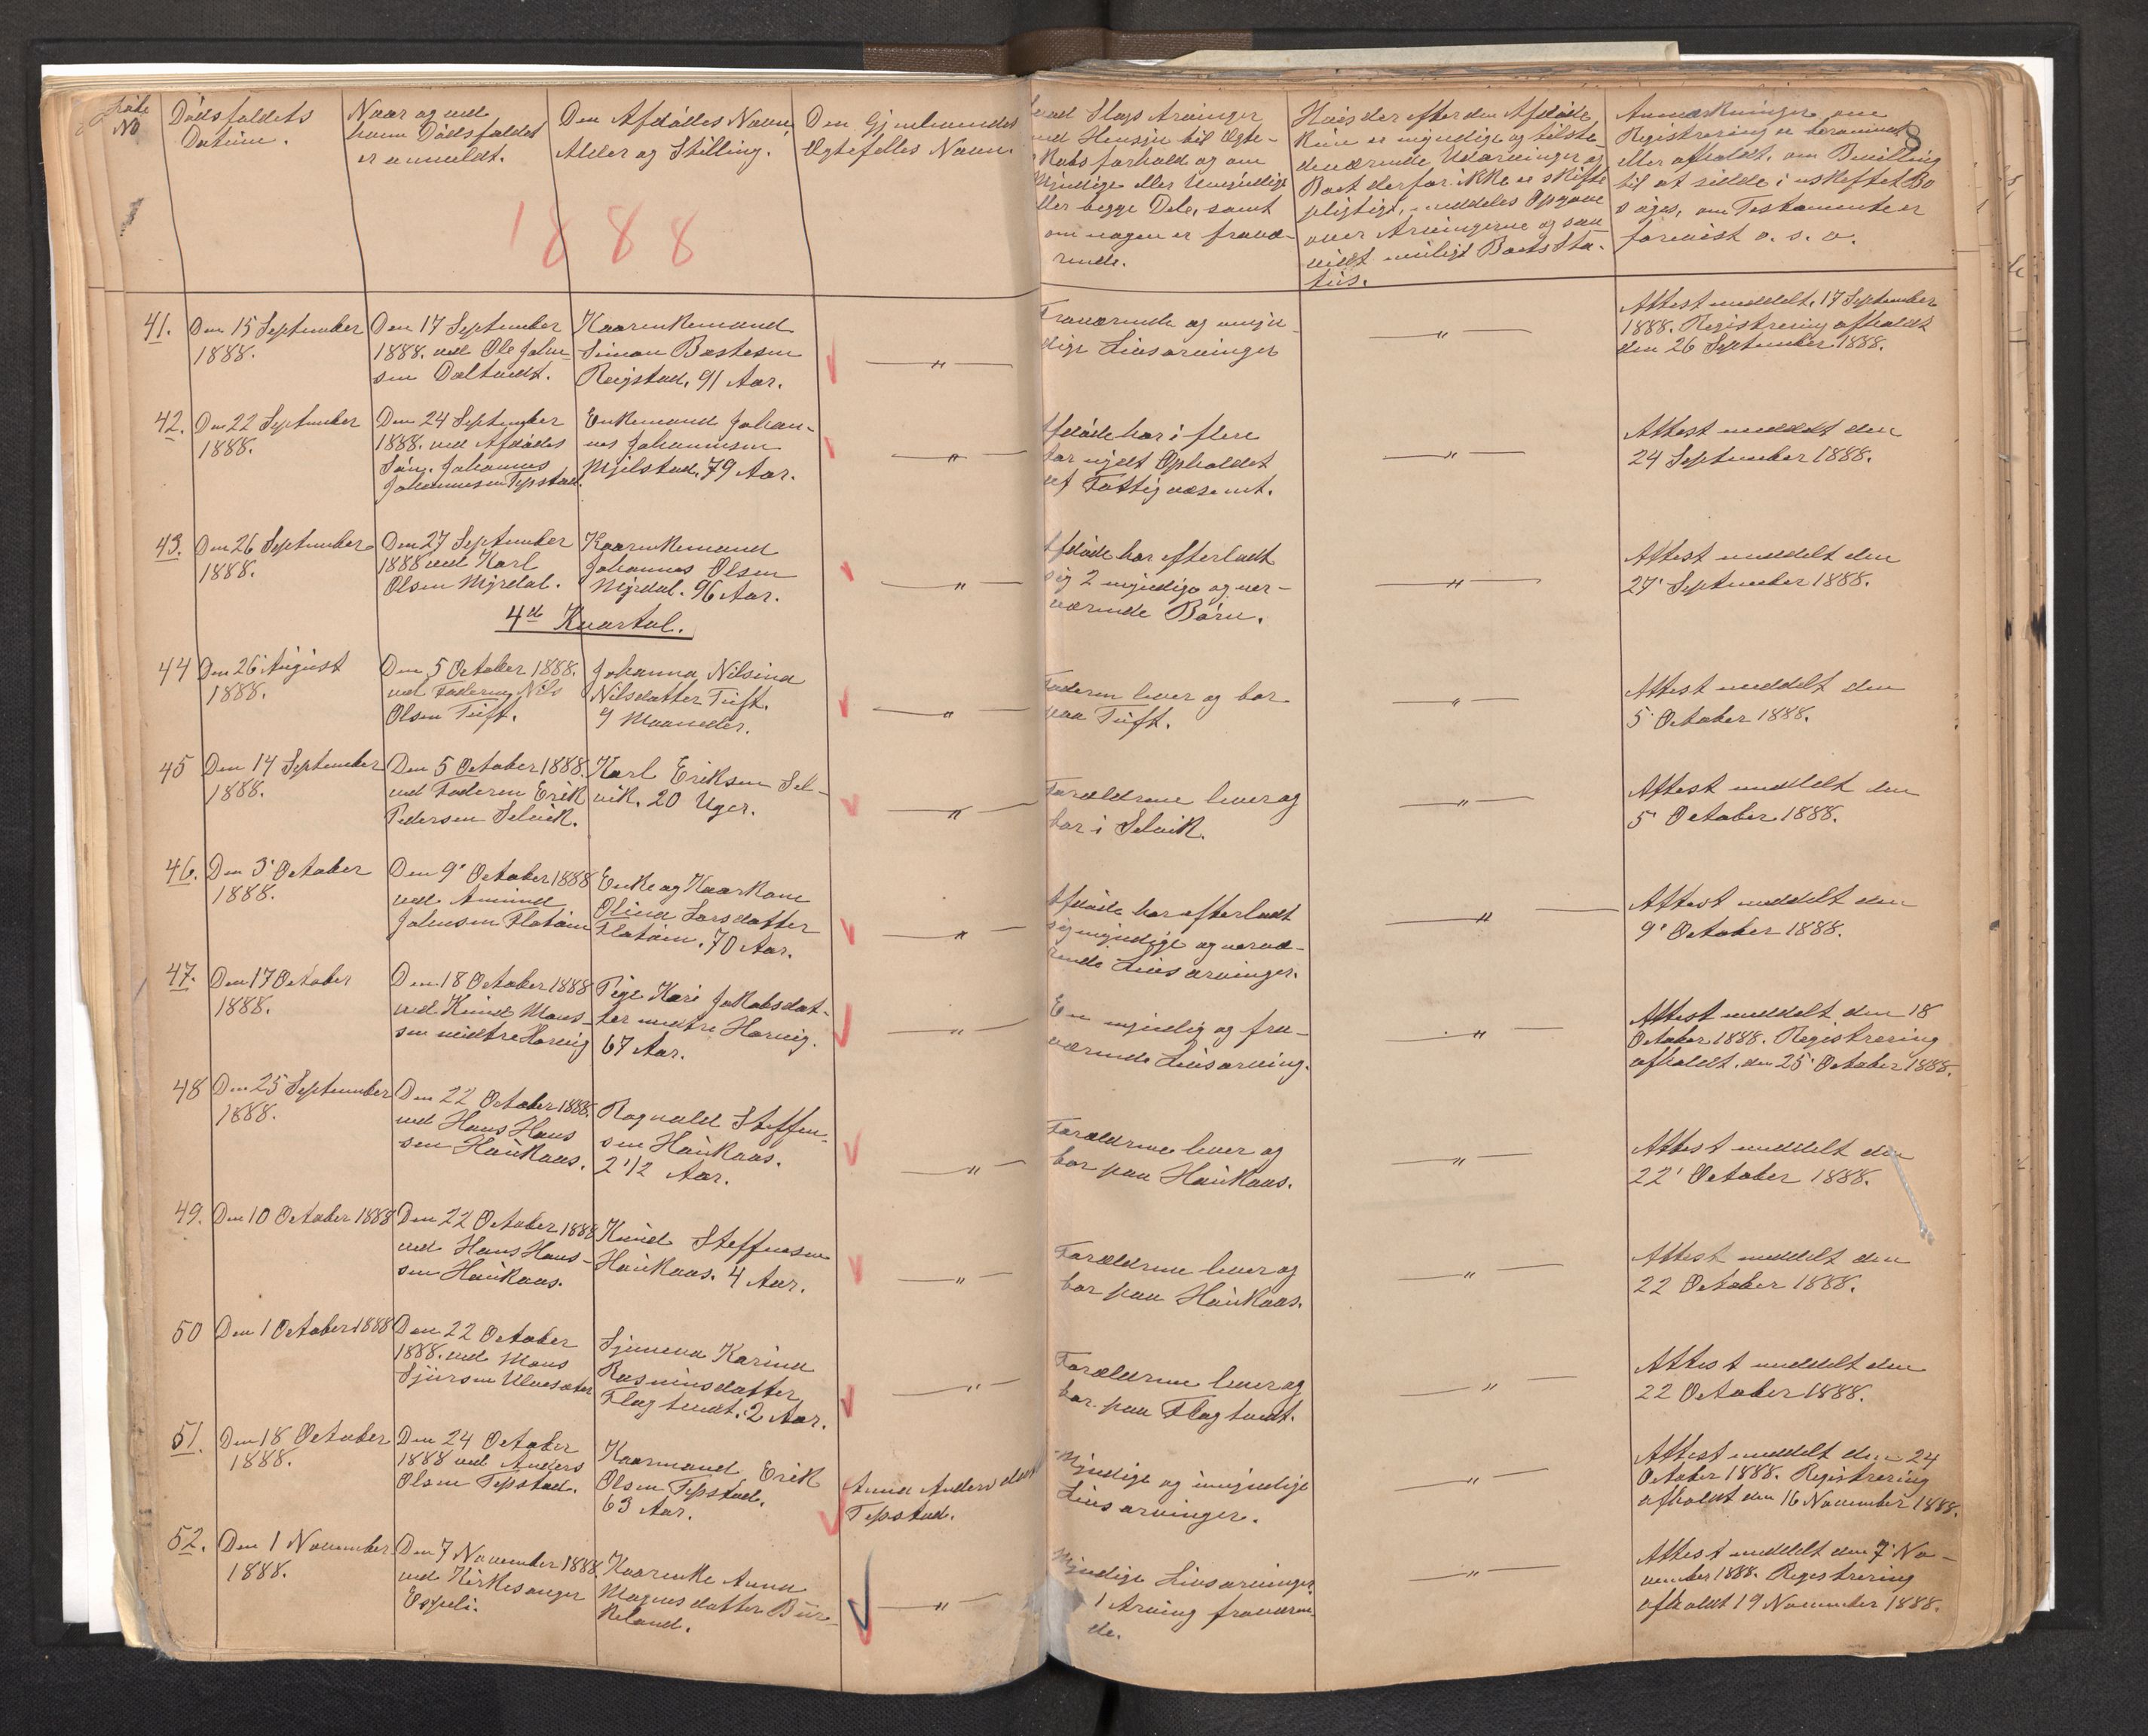 Løbe No
Dødsfaldets
Datum.
Naar og ved
hvem Dødsfaldet
er anmeldt.
Den Afdødes Navn,
Alder og Stilling.
Den Gjenlevendes
Ægtefelles Navn.
Hvad Slags Arvinger
med Hensyn til Ægte-
skabsforhold og om
Myndige eller Umyndige
eller begge Dele, samt
om nogen er fravæ-
rende.
Hvis der efter den Afdøde
kun er myndige og tilste-
deværende Udarvinger og
Boet derfor ikke er skifte
pligtigt, meddeles Opgave
over Arvingerne og saa
vidt muligt Boets Sta-
tus.
Anmærkninger om
Registrering er berammet
eller afholdt, om Bevilling
til at sidde i uskiftet Bo
søges, om Testamente er
forevist o. s. v.
8
1888
41.
Den 15 September
1888.
Den 17 September
1888. ved Ole John-
sen Daltvedt.
Kaarenkemand
Simon Bastesen
Røgstad, 91 Aar.
"
Fraværende og umyn-
dige Livsarvinger
"
Attest meddelt, 17 September
1888. Registrering afholdt
den 26 September 1888.
42.
Den 22 September
1888.
Den 24 September
1888. ved Afdødes
Søn, Johannes
Johannesen Tepstad.
Enkemand Johan-
nes Johannesen
Mjelstad, 79 Aar.
"
Afdøde har i flere
Aar nydt Ophold
af Fattigvæsenet.
"
Attest meddelt den
24 September 1888.
43.
Den 26 September
1888.
Den 27 September
1888 ved Karl
Olsen Myrdal.
Kaarenkemand
Johannes Olsen
Myrdal. 96 Aar.
"
Afdøde har efterladt
sig 2 myndige og nær-
værende Børn.
"
Attest meddelt den
27' September 1888.
4de Kvartal.
44
Den 26 August
1888.
Den 5 October 1888.
ved Faderen Nils
Olsen Tuft.
Johanna Nilsina
Nilsdatter Tuft.
9 Maaneder.
"
Faderen lever og bor
paa Tuft.
"
Attest meddelt den
5' October 1888.
45
Den 14 September
1888.
Den 5 October 1888.
ved Faderen Erik
Pedersen Selvik.
Karl Eriksen Sel-
vik. 20 Uger.
"
Forældrene lever og
bor i Selvik.
"
Attest meddelt den
5' October 1888.
46.
Den 3' October
1888.
Den 9' October 1888
ved Amund
Johnsen Fløtøen
Enke og Kaarkone
Olina Larsdatter
Fløtøen. 70 Aar.
"
Afdøde har efterladt
sig myndige og nærvæ-
rende Livsarvinger.
"
Attest meddelt den
9' October 1888.
47.
Den 17 October
1888.
Den 18 October 1888
ved Knud Mons-
sen midtre Høvig
Pige Kari Jakobsdat-
ter midtre Høvig.
67 Aar.
"
En myndig og fra-
værende Livsarving.
"
Attest meddelt den 18
October 1888. Registrering
afholdt, den 25' October 1888.
48
Den 25 September
1888.
Den 22 October 1888.
ved Hans Hans
sen Haukaas.
Ragnald Steffen-
sen Haukaas.
2 1/2 Aar.
"
Forældrene lever og
bor paa Haukaas.
"
Attest meddelt den
22' October 1888.
49.
Den 10 October 1888
Den 22 October 1888
ved Hans Hans-
sen Haukaas.
Knud Steffensen
Haukaas. 4 Aar.
"
Forældrene lever og
bor paa Haukaas.
"
Attest meddelt den
22 October 1888.
50
Den 1 October 1888
Den 22 October
1888. ved Mons
Sjursen Ulvesæter
Sjumena Karina
Rasmusdatter
Flagtvedt. 2 Aar.
"
Forældrene lever og
bor paa Flagtvedt.
"
Attest meddelt den
22 October 1888.
51.
Den 18 October
1888.
Den 24 October
1888 ved Anders
Olsen Tepstad.
Kaarmand Erik
Olsen Tepstad.
63 Aar.
Anna Andersdatter
Tepstad.
Myndige og umyndige
Livsarvinger.
"
Attest meddelt den 24
October 1888. Registrering
afholdt den 16 November 1888.
52.
Den 1 November
1888.
Den 7 November 1888
ved Kirkesanger
Espeli.
Kaarenke Anna
Magnesdatter Bur-
keland.
"
Myndige Livsarvinger
1 Arving fraværen-
de.
"
Attest meddelt den 7' No-
vember 1888. Registrering
afholdt 19 November 1888.